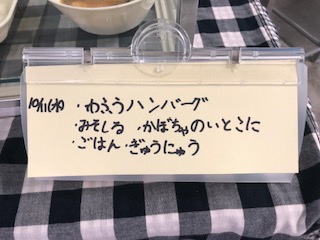 10/16(水) ・わふうハンバーグ
・みそしる ・かぼちゃのいとこに
・ごはん ・ぎゅうにゅう